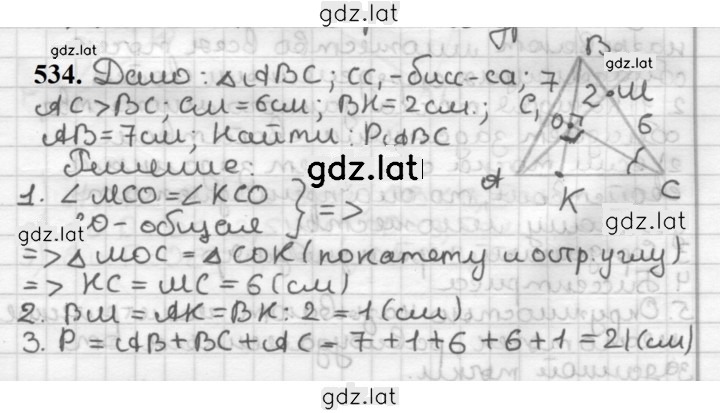 gdz.lat
534. Дано: △ABC; CC₁-бисс-са; 7
AC>BC; CM=6см; BK=2см.;
AB=7см; Найти: P△ABC
Решение:
1. ∠MCO=∠KCO
CO- общая } =>
=> △MOC = △COK (по катету и остр. углу)
=> KC = MC = 6 (см)
2. BM = AK = BK : 2 = 1 (см)
3. P = AB + BC + AC = 7 + 1 + 6 + 6 + 1 = 21 (см)
B
gdz.lat
2 M
C₁
O 6
A
K
C
gdz.lat
gdz.lat
gdz.lat
gdz.lat